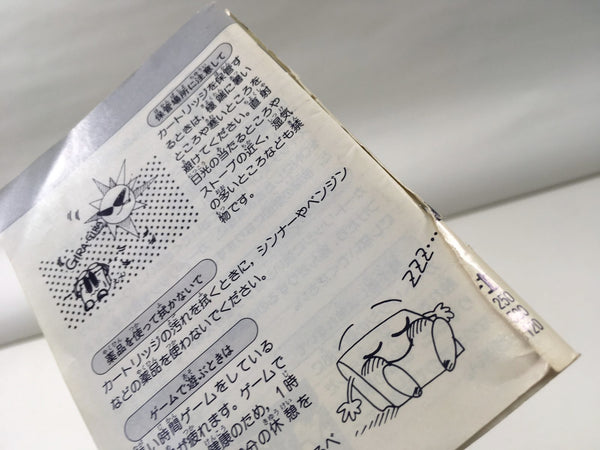 保管場所に注意して
カートリッジを保管す
るときは、極端に暑い
ところや寒いところを
避けてください。直射
日光の当たるところや
ストーブの近く、湿気
の多いところなども禁
物です。
GIRA-GIRA
薬品を使って拭かないで
カートリッジの汚れを拭くときに、シンナーやベンジン
などの薬品を使わないでください。
ゲームで遊ぶときは
い時間ゲームをしている
が疲れます。ゲームで
健康のため、1時
分の休憩を
ZZZ...
250
20